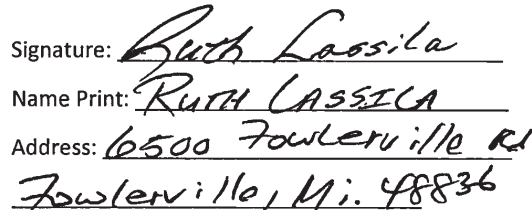 Signature: Ruth Lassila
Name Print: RUTH LASSILA
Address: 6500 Fowlerville Rd
Fowlerville, Mi. 48836